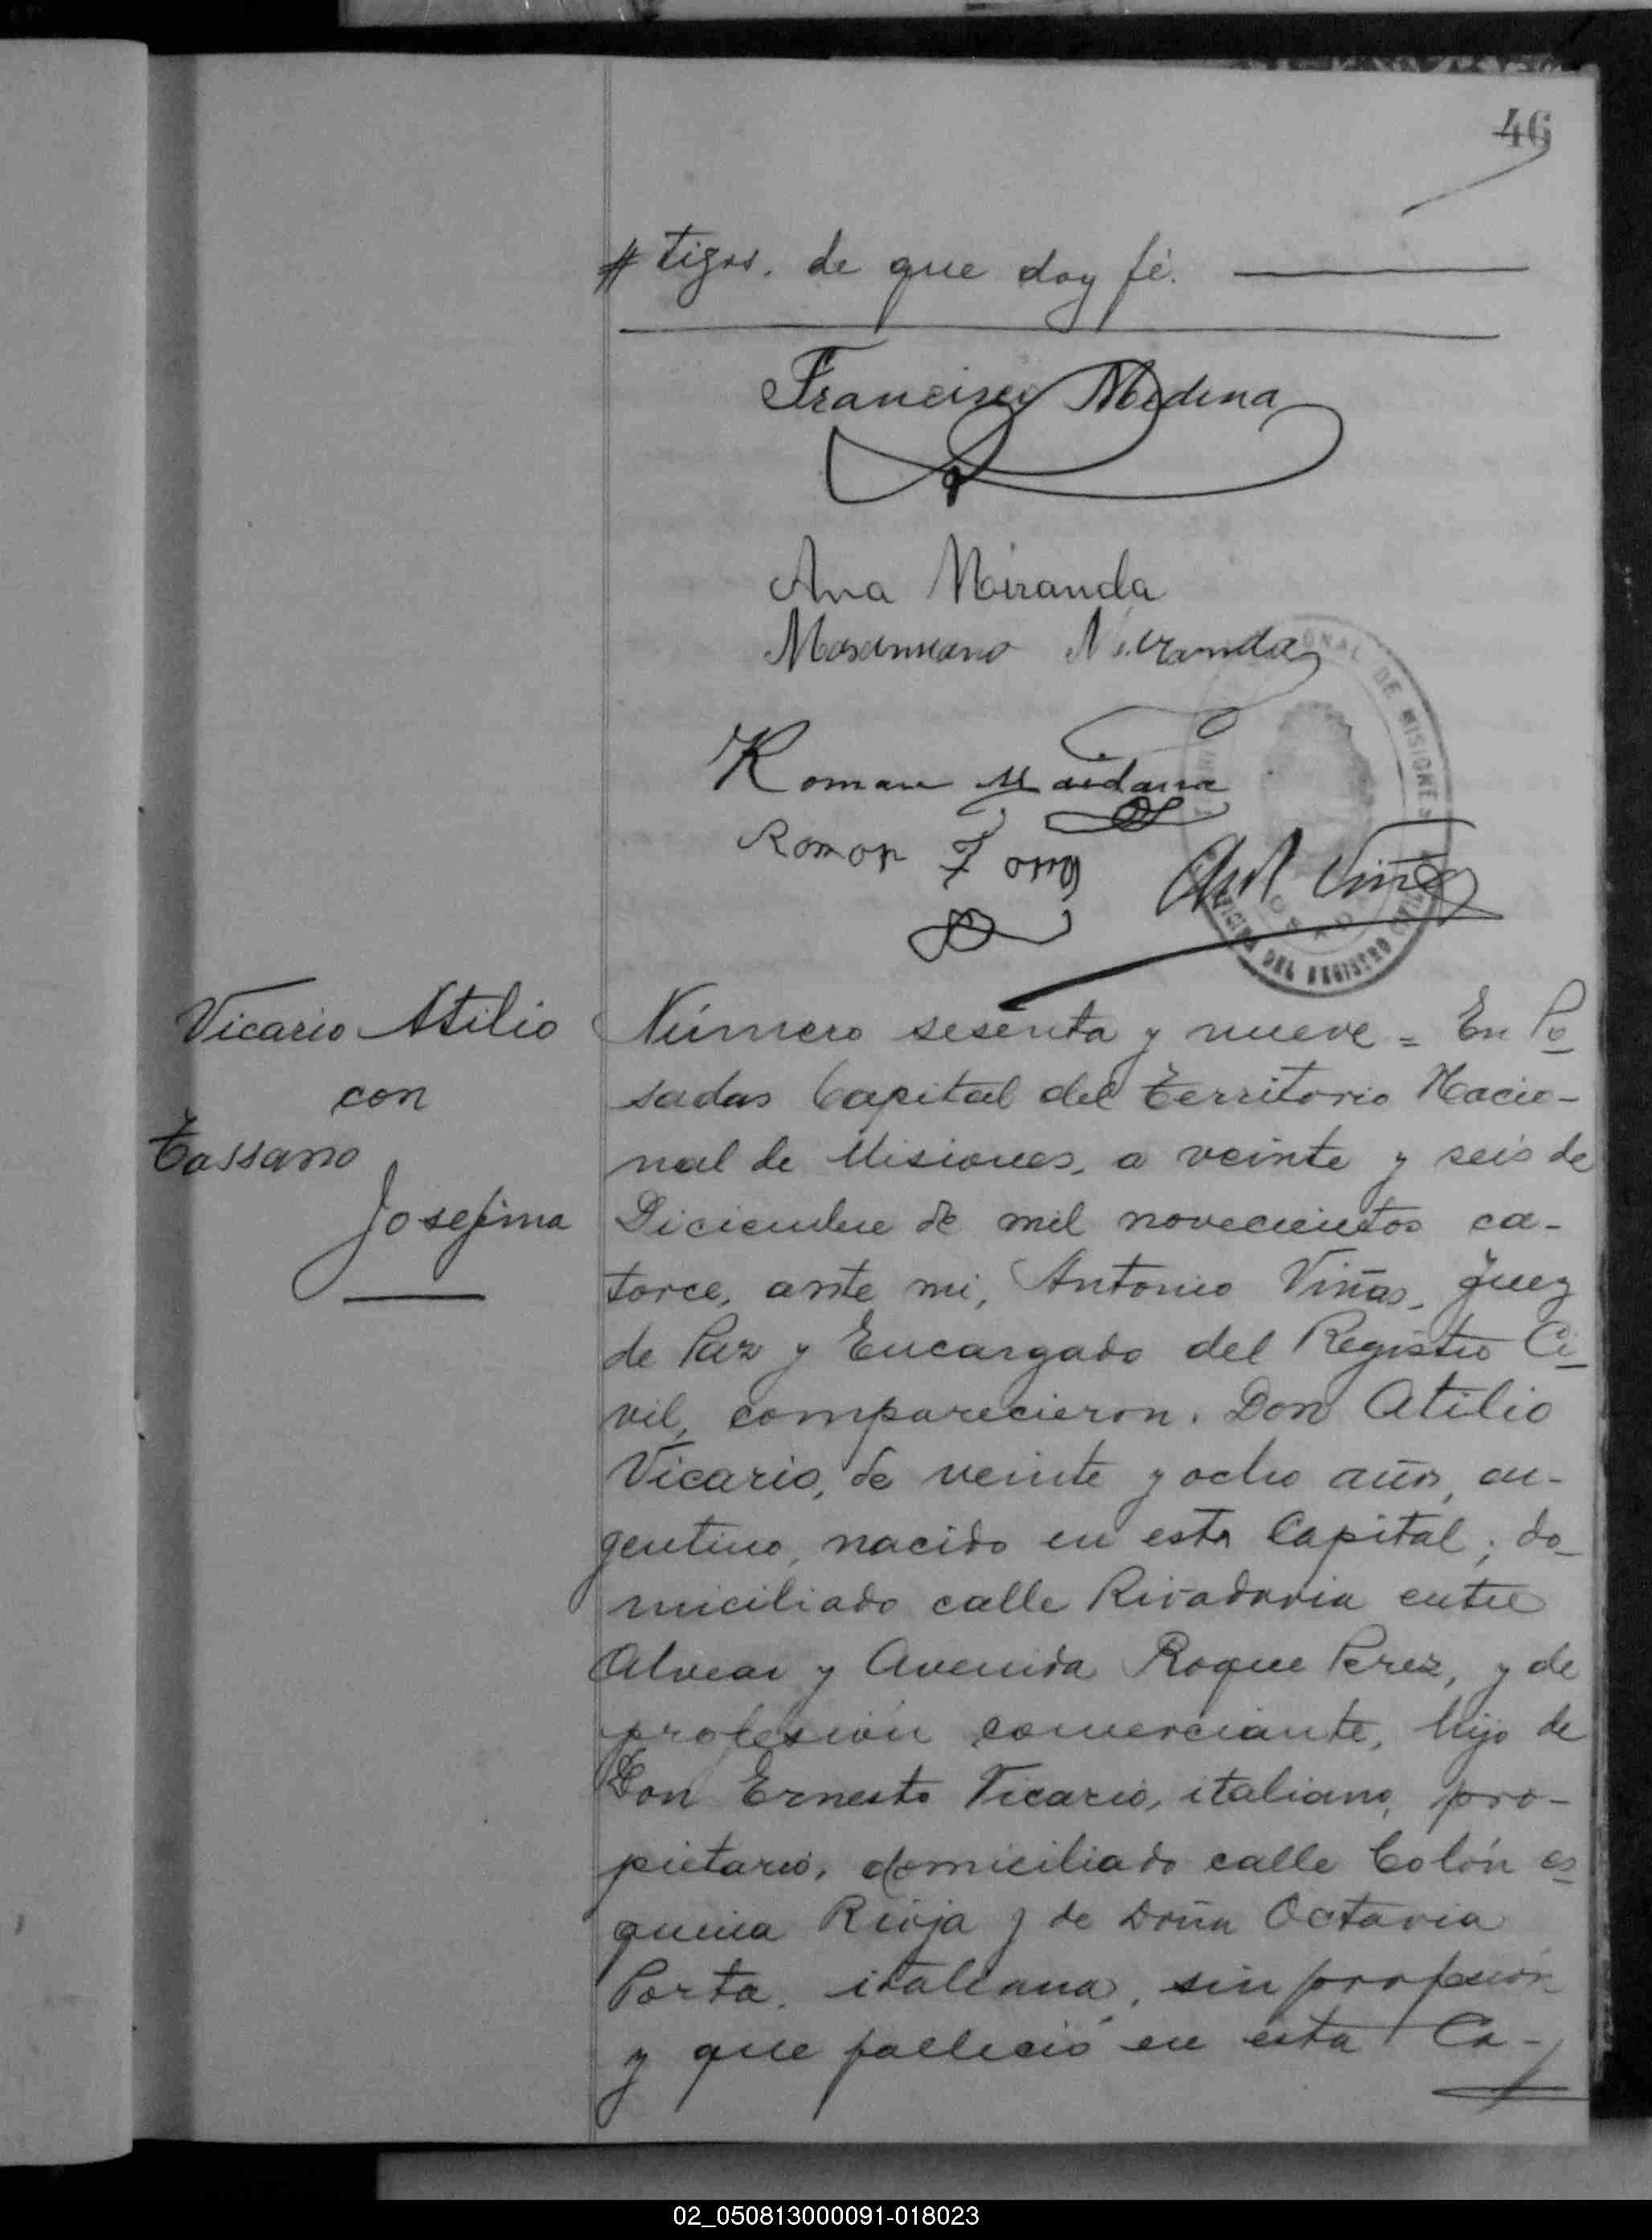 46
# tigos. de que doy fé.
Francisco Medina
Ana Miranda
Maximiano Miranda
Roman Maidana
Ramon
Ant Viñas
NAL DE MISIONES
OFICINA DEL REGISTRO CIVIL
Vicario Atilio
con
Tassano
Josefina
Número sesenta y nueve = En Po
sadas Capital del Territorio Nacio-
nal de Misiones, a veinte y seis de
Diciembre de mil novecientos ca-
torce, ante mi, Antonio Viñas, Juez
de Paz y Encargado del Registro Ci
vil, comparecieron. Don Atilio
Vicario, de veinte y ocho años, ar-
gentino, nacido en esta Capital; do
miciliado calle Rivadavia entre
Alvear y Avenida Roque Perez, y de
profesión comerciante, hijo de
Don Ernesto Vicario, italiano, pro-
pietario, domiciliado calle Colón es
quina Rioja y de Doña Octavia
Porta, italiana, sin profesión
y que falleció en esta Ca-
02_050813000091-018023